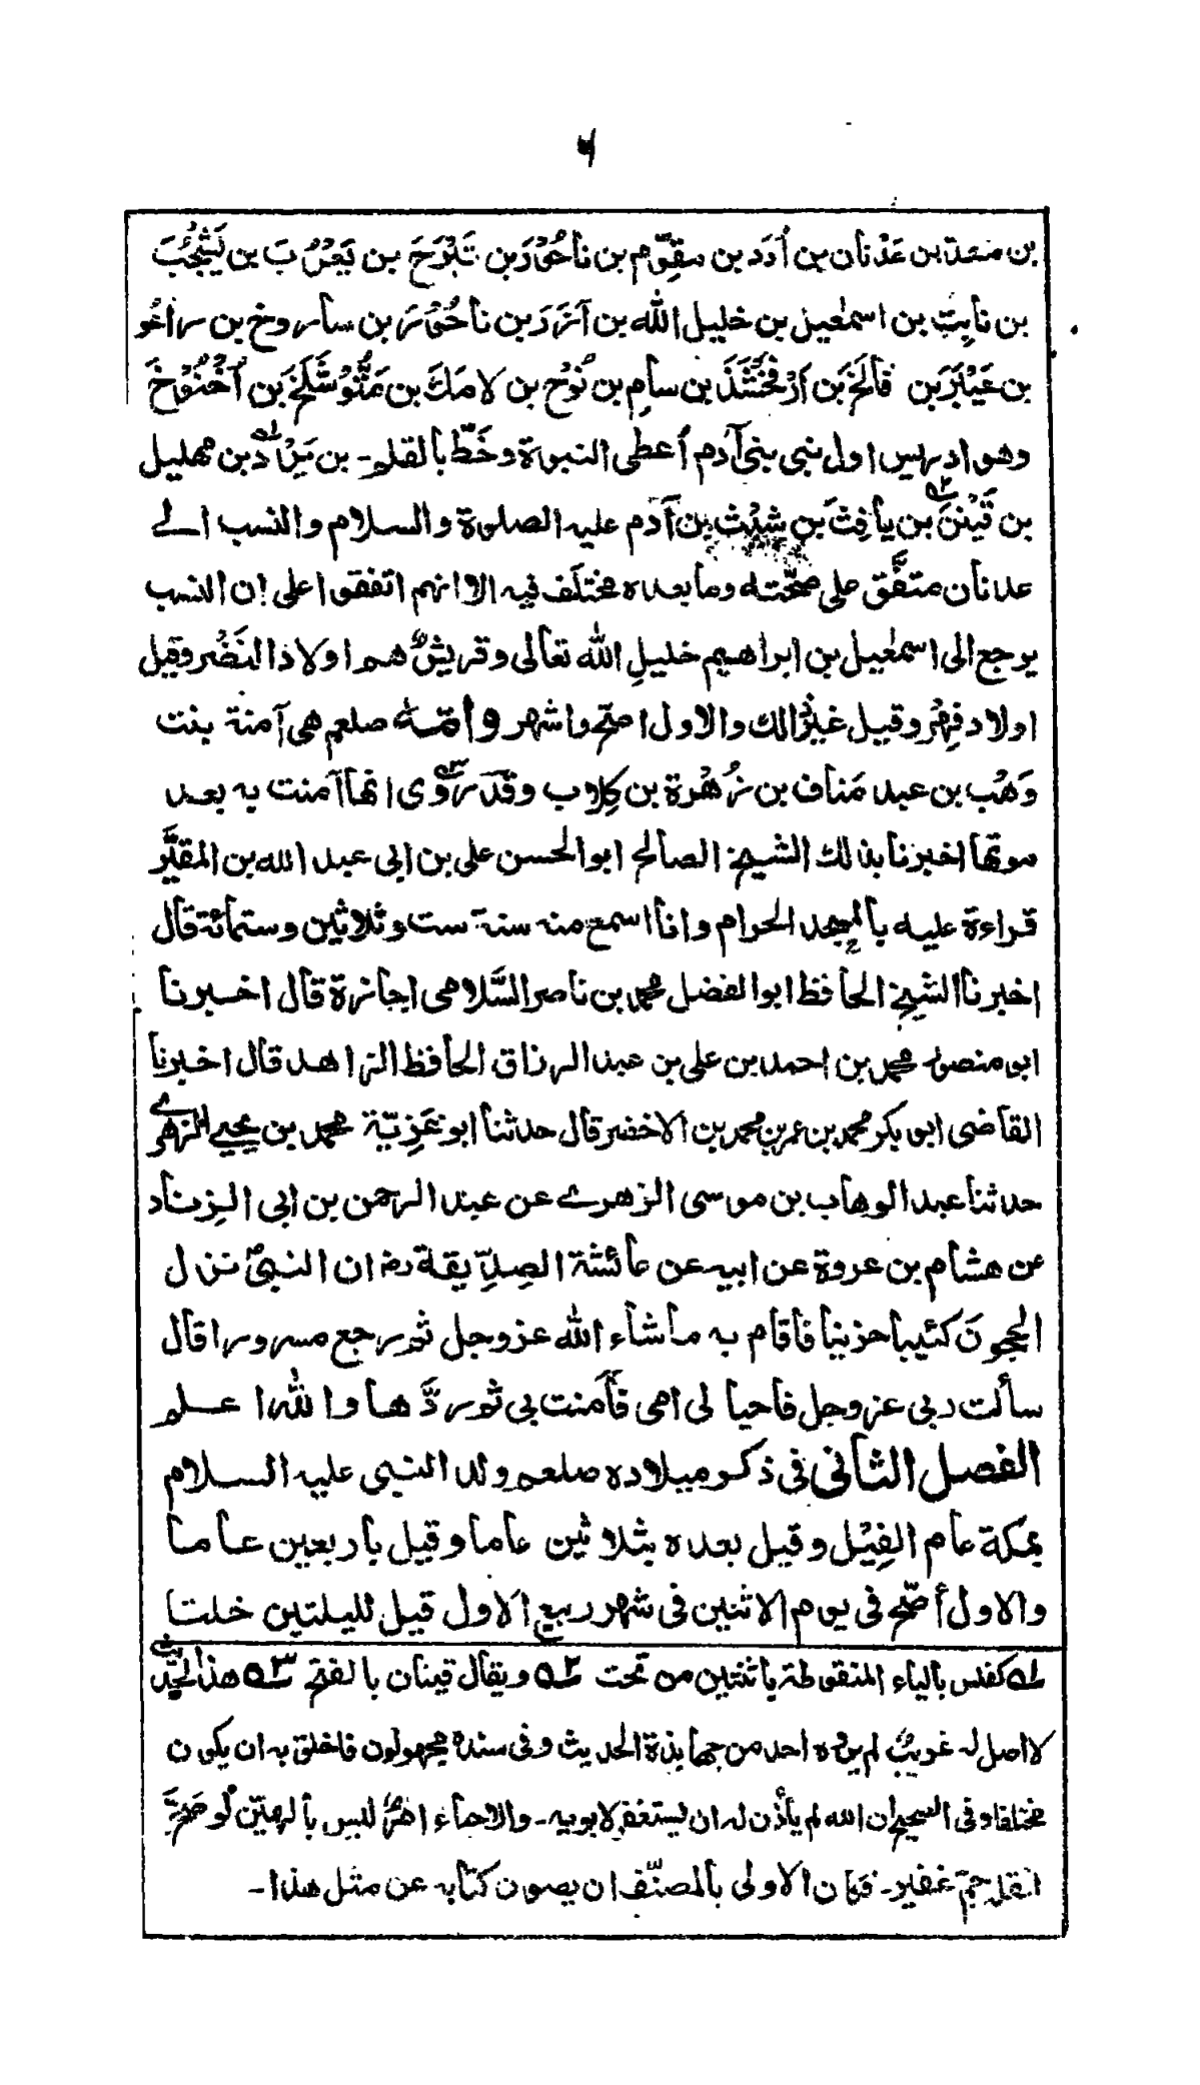 بن معد بن عَدْنان بن اُدَد بن مقوّم بن ناحُوْرَ بن تَيْرَحَ بن يَعْرُبَ بن يَشْجُبَ
بن نابِت بن اسمٰعيل بن خليل الله بن آزَرَ بن ناحُوْرَ بن ساروخ بن راغُو
بن عَيْبَرَ بن فالَخَ بن اَرْفَخْشَذَ بن سامِ بن نُوْح بن لامَكَ بن مَتُّوْشَلَخَ بن اَخْنُوْخَ
وهو ادريس اول نبى بنى آدم اُعطى النبوة وخَطّ بالقلم۔ بن يَرْدَ بن مهليل
بن قَيْنَنَ بن يافِث بن شِيْث بن آدم عليه الصلوة والسلام والنسب الے
عدنان متفَّق على صحّته وما بعده مختلَف فيه الا انهم اتفقوا على ان النسب
يرجع الى اسمٰعيل بن ابراهيم خليلِ الله تعالى وقريشٌ هم اولاد النَضْر وقيل
اولاد فِهْر وقيل غيرُ ذالك والاول اصحّ واشهر وامّه صلعم هى آمنة بنت
وَهْب بن عبد مَناف بن زُهْرة بن كِلاب وقد رُوى انها آمنت به بعد
موتها اخبرنا بذلك الشيخ الصالح ابوالحسن على بن ابى عبد الله بن المقيَّر
قراءة عليه بالمسجد الحرام وانا اسمع منه سنة ست وثلاثين وستمائة قال
اخبرنا الشيخ الحافظ ابوالفضل محمد بن ناصر السَّلامى اجازة قال اخبرنا
ابو منصور محمد بن احمد بن على بن عبد الرزاق الحافظ الزاهد قال اخبرنا
القاضى ابو بكر محمد بن عمر بن محمد بن الاخضر قال حدثنا ابو غَزِيّة محمد بن يحيے الزهرے
حدثنا عبد الوهاب بن موسى الزهرے عن عبد الرحمن بن ابى الزِناد
عن هشام بن عروة عن ابيه عن عائشة الصِدِّيقة رض ان النبىّ نزل
الحجونَ كئيبا حزينا فاقام به ما شاء الله عز وجل ثم رجع مسرورا قال
سألت ربى عز وجل فاحيا لى امى فآمنت بى ثم ردَّها والله اعلم
الفصل الثانى فى ذكر ميلاده صلعم ولد النبى عليه السلام
بمكة عام الفِيْل وقيل بعده بثلاثين عاما وقيل باربعين عاما
والاول أصّح فى يوم الاثنين فى شهر ربيع الاول قيل لليلتين خلتا
۱ه كفلس بالياء المنقوطة باثنتين من تحت ۲ه ويقال قينان بالفتح ۳ه هذا الحديث
لا اصل له غريبٌ لم يروه احد من جهابذة الحديث وفى سنده مجهولون فاخلق به ان يكون
مختلقا وفى الصحيح ان الله لم يأذن له ان يستغفر لابويه۔ والاحياء امرٌ ليس بالهيّن لو صحّ
لنقله جمّ غفير۔ فكان الاولى بالمصنّف ان يصون كتابه عن مثل هذا۔